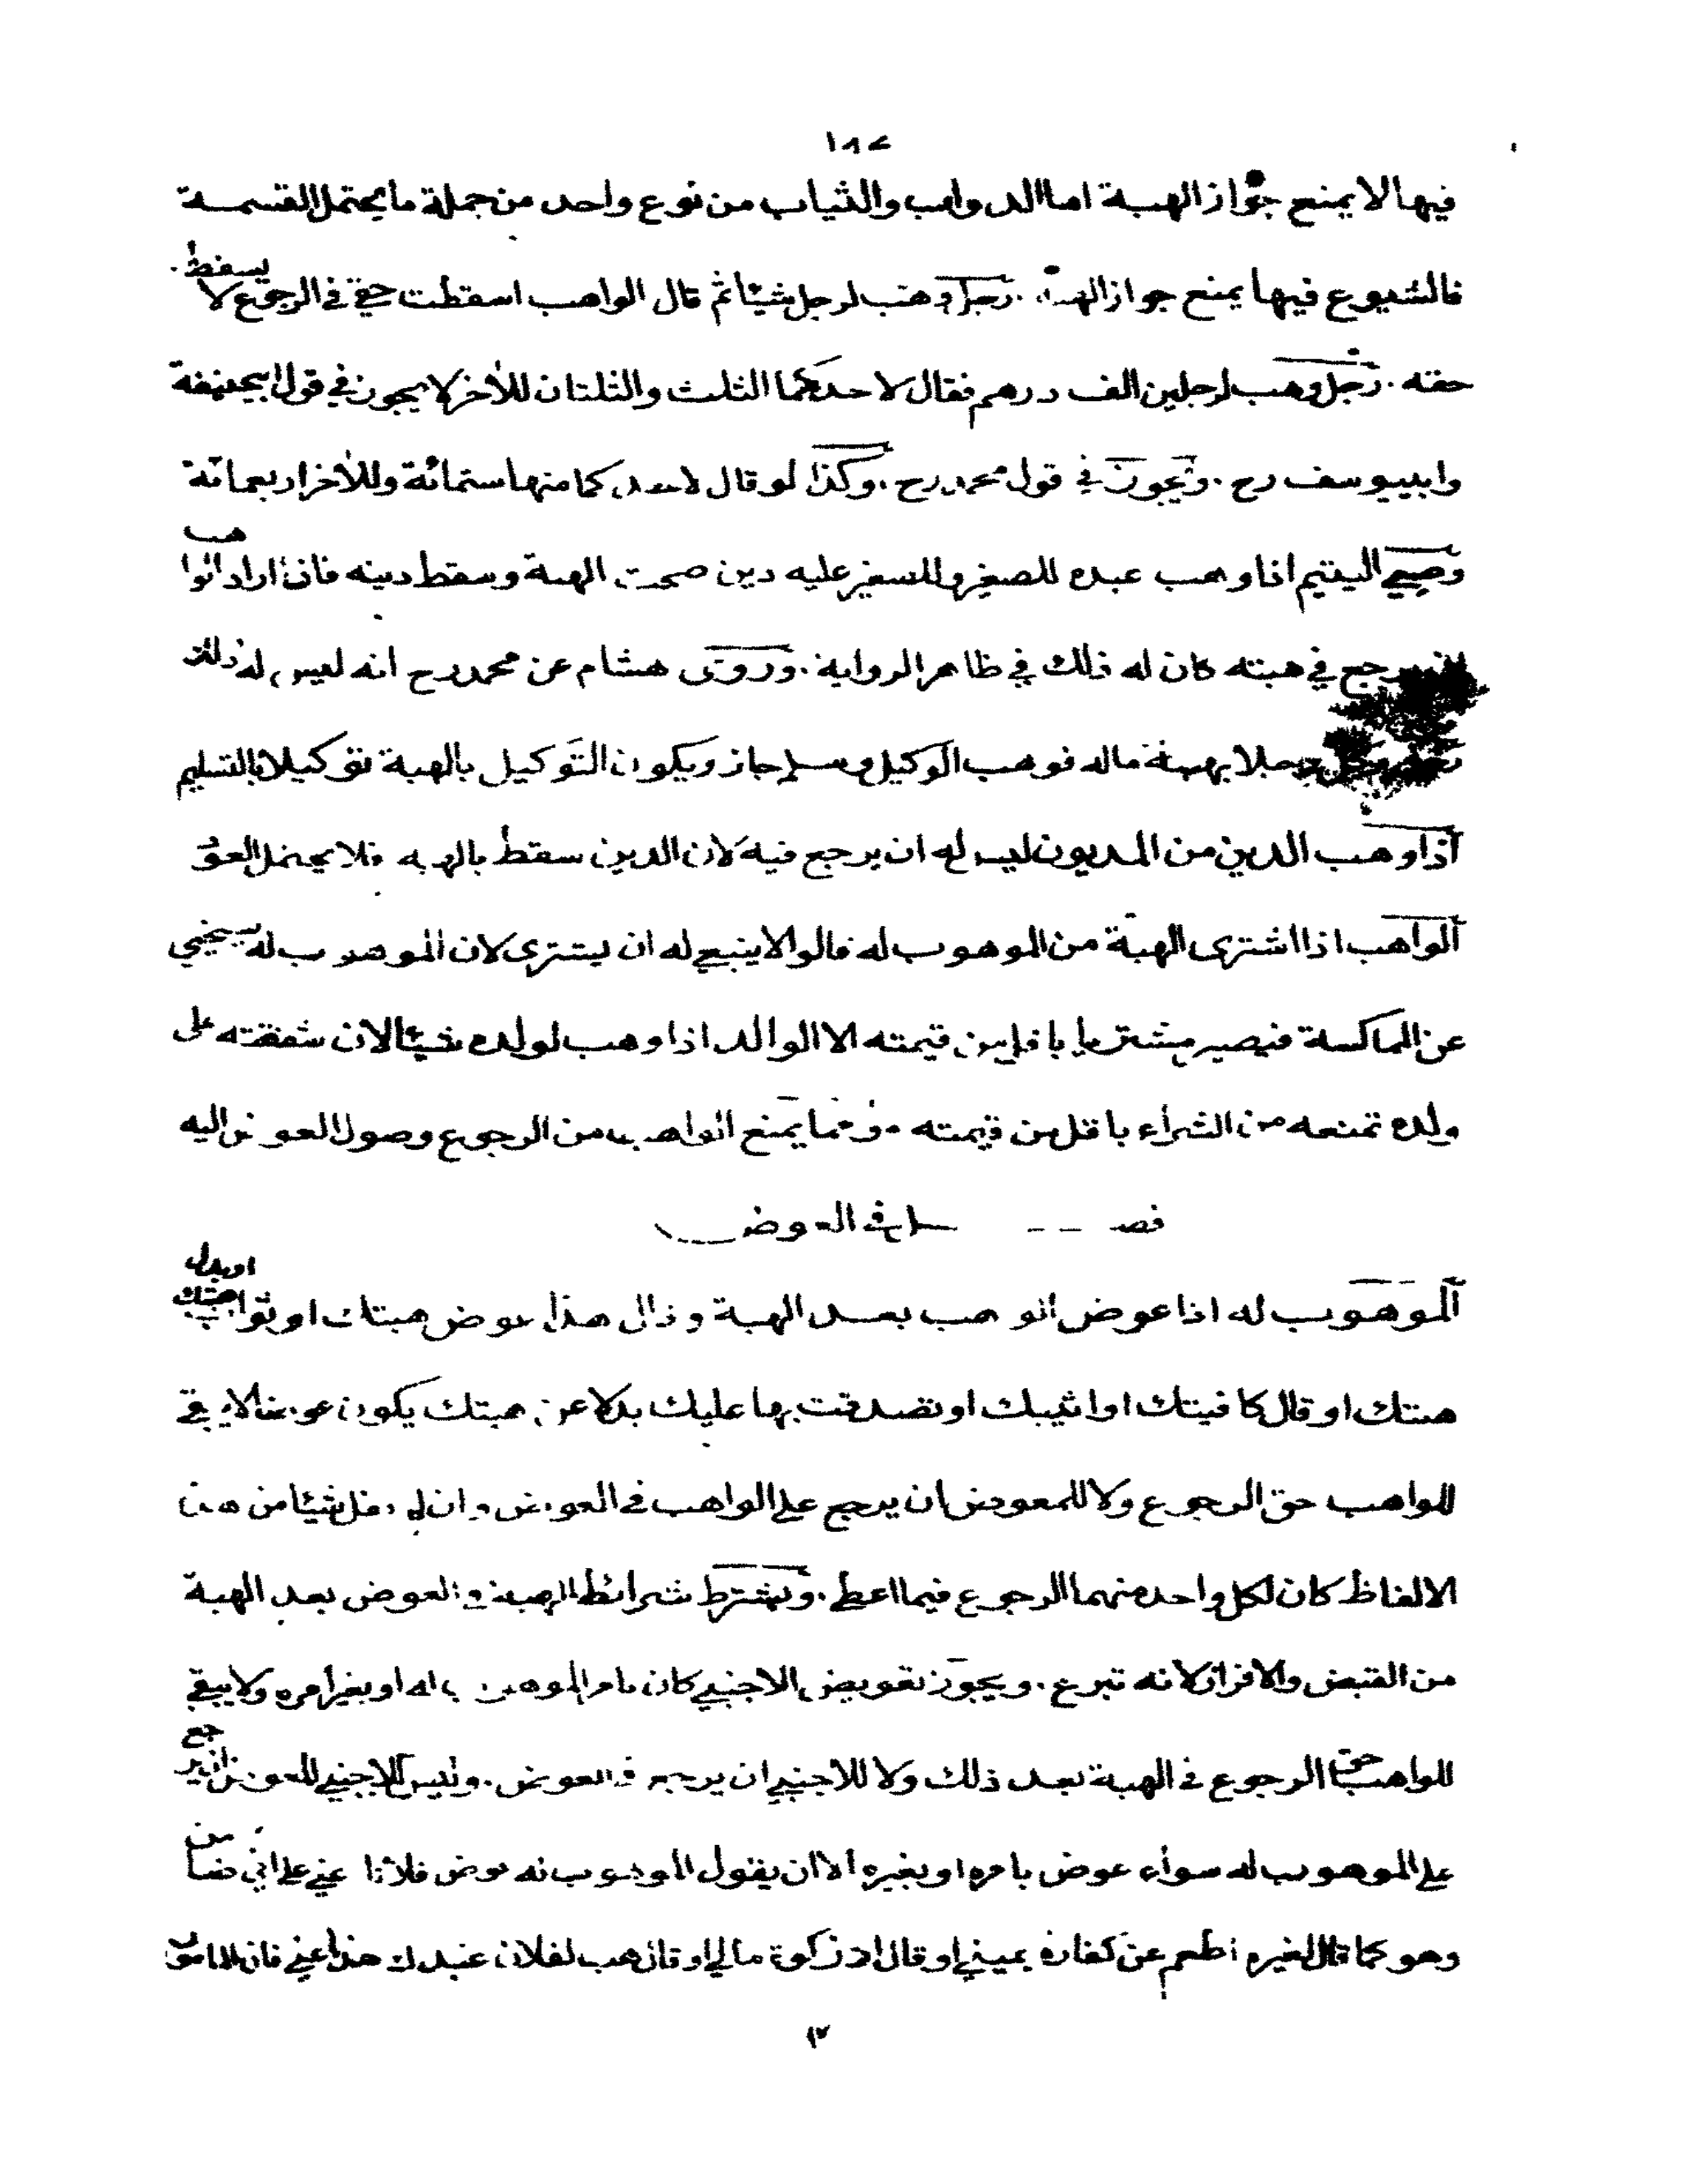 ١٨٤
فيها لا يمنع جواز الهبة اما الدواب والثياب من نوع واحد من جملة ما يحتمل القسمة
فالشيوع فيها يمنع جواز الهبة . رجل وهب لرجل شيئا ثم قال الواهب اسقطت حقي في الرجوع لا يسقط
حقه . رجل وهب لرجلين الف درهم فقال لاحدكما الثلث والثلثان للاخر لا يجوز في قول ابيحنيفة
وابييوسف رح . ويجوز في قول محمد رح . وكذا لو قال لاحدكما منها ستمائة وللاخر اربعمائة
وصي اليتيم اذا وهب عبده للصغير وللصغير عليه دين صحت الهبة وسقط دينه فان اراد الواهب
ان يرجع في هبته كان له ذلك في ظاهر الرواية . وروى هشام عن محمد رح انه ليس له ذلك
رجلا بهبة ماله فوهب الوكيل وسلم جاز ويكون التوكيل بالهبة توكيلا بالتسليم
اذا وهب الدين من المديون ليس له ان يرجع فيه لان الدين سقط بالهبة فلا يحتمل العود
الواهب اذا اشترى الهبة من الموهوب له قالوا لا ينبغي له ان يشتري لان الموهوب له يستحيي
عن المماكسة فيصير مشتريا باقل من قيمته الا الوالد اذا وهب لولده شيئا لان شفقته على
ولده تمنعه من الشراء باقل من قيمته . ومما يمنع الواهب من الرجوع وصول العوض اليه
فصل في العوض
الموهوب له اذا عوض الواهب بعد الهبة وقال هذا عوض هبتك او ثواب هبتك او بدل
هبتك او قال كافيتك او اثيبك او تصدقت بها عليك بدلا عن هبتك يكون عوضا لا يبقى
للواهب حق الرجوع ولا للمعوض ان يرجع على الواهب في العوض وان لم يقل شيئا من هذه
الالفاظ كان لكل واحد منهما الرجوع فيما اعطى . ويشترط شرائط الهبة في العوض بعد الهبة
من القبض والافراز لانه تبرع . ويجوز تعويض الاجنبي كان بامر الموهوب له او بغير امره ولا يبقى
للواهب حق الرجوع في الهبة بعد ذلك ولا للاجنبي ان يرجع في العوض . وليس للاجنبي المعوض ان يرجع
على الموهوب له سواء عوض بامره او بغيره الا ان يقول الموهوب له عوض فلانا عني على اني ضامن
وهو كما قال لغيره اطعم عن كفارة يميني او قال اد زكوة مالي او قال هب لفلان عبدك هذا عني فان المامور